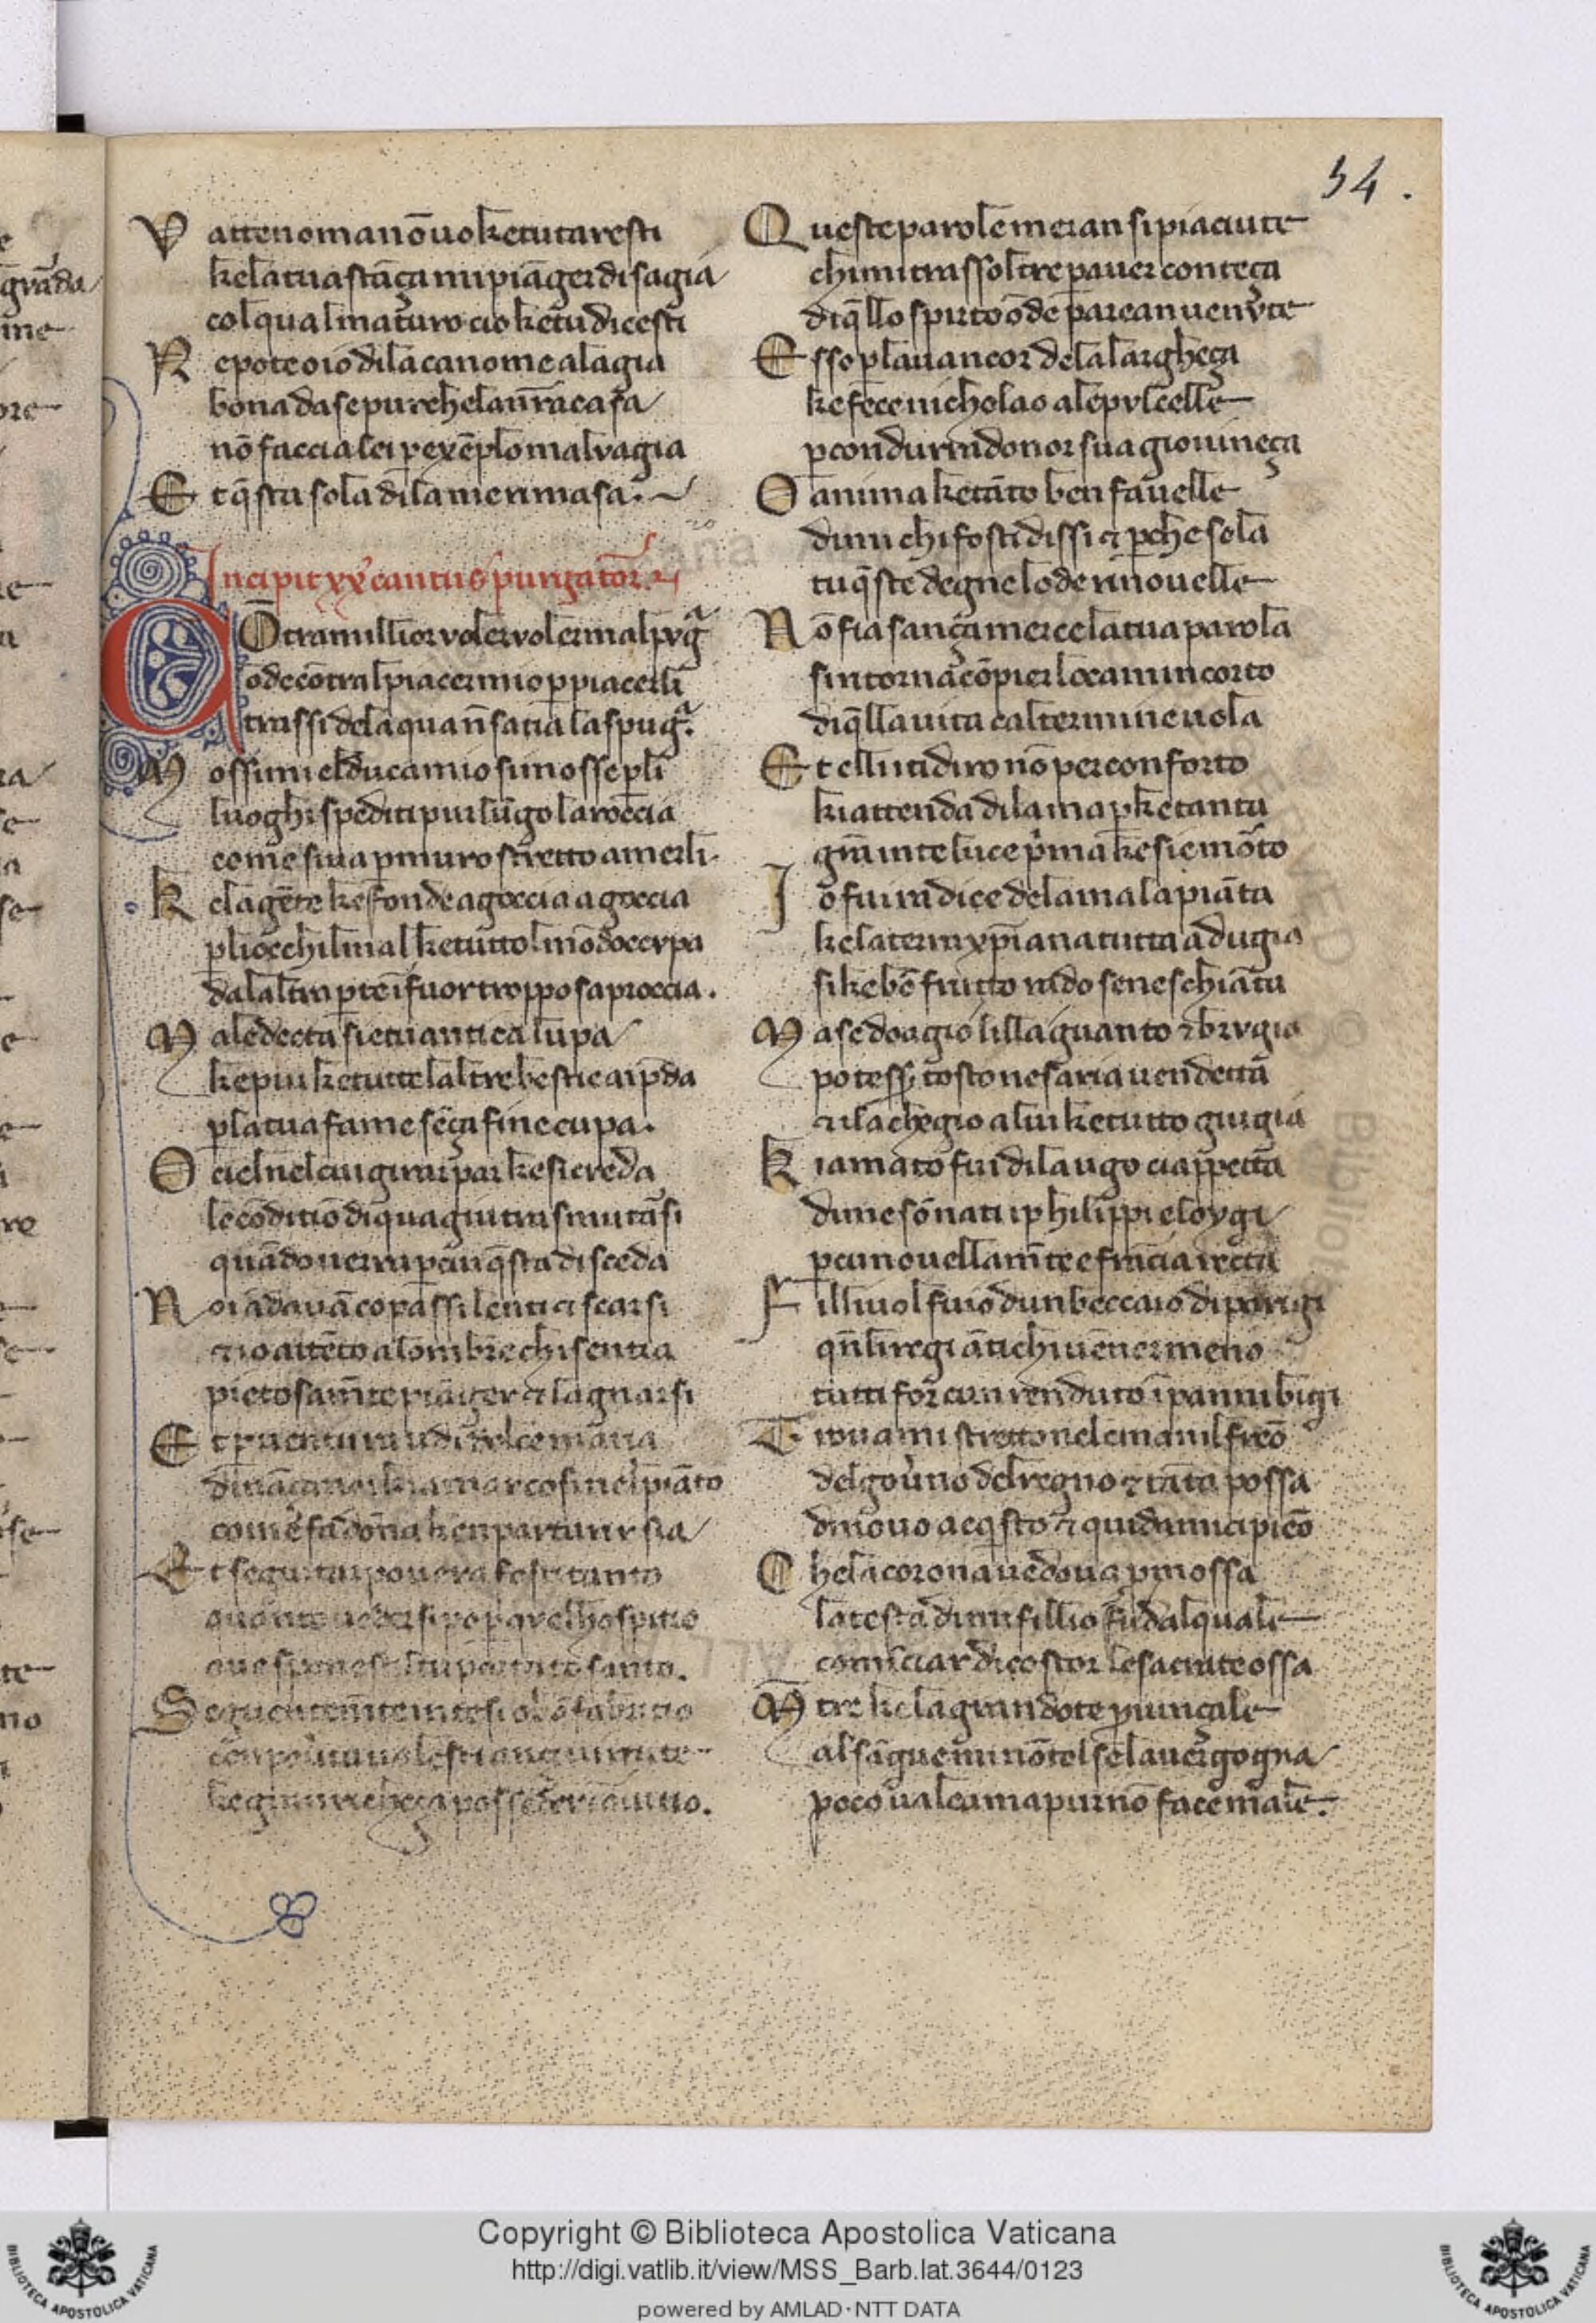 54.
Vattenomanōuoketutaresti
kelatuastāçamipiāgerdisagia
colqualmaturo cio ketudicesti
Nepote o io dila ca nome alagia
bona da se pur che la nr̄a casa
nō faccia lei p exēplo malvagia
Et q̄sta sola dila me rimasa.
Incipit xx cantus purgator.
COtra millior voler voler mal pugᵃ
ōde cōtral piacer mio p piacerli
trassi dela qua nō satia la spugᵃ.
Mossimi el duca mio si mosse p li
luoghi spediti pur lūgo la roccia
come si va p muro stretto a merli.
Kela gēte ke fonde a goccia a goccia
p li occhi l mal ke tutto l mōdo occupa
da l altra pte ī fuor troppo s aproccia.
Maledecta sie tu antica lupa
ke piu ke tutte l altre bestie ai p̄da
p la tua fame sēça fine cupa.
O ciel nel cui girar par ke si creda
le cōditiō di qua giu trasmutarsi
quādo uerra p cui q̄sta disceda
Noi ādavā co passi lenti et scarsi
et io attēto a lombre chi sentia
pietosam̄te piāger et lagnarsi
Et p uentura udi dolce maria
dināci a noi kiamar cosi nel piāto
come fa dōna ke n parturir sia
Et seguitar povera fosti tanto
quanto ueder si po p quel hospitio
oue sponesti il tu portato santo.
Seguentem̄te intesi o bō fabritio
cō poverta volesti anci virtute
ke gran richeça posseder cō uitio.
Queste parole m eran si piaciute
ch i mi trassi oltre p auer conteça
di q̄llo spirto ōde parean uenute
Esso plava ancor dela largheça
ke fece nicholao a le pulcelle
p condur ad onor sua gioui neça
O anima ke tāto ben favelle
dimi chi fosti dissi et p che sola
tu q̄ste degne lode rinouelle
Nō fia sança merce la tua parola
s i n torna cōpier lo camin corto
di q̄lla uita c al termine uola
Et elli ti diro nō per conforto
k i attenda di la ma p ke tanta
gr̄a in te luce p̄ma ke sie mōto
Io fui radice de la mala piāta
ke la terra xp̄iana tutta adugia
si ke bō frutto rado se ne schiāta
Ma se doagio lilla guanto et brugia
potesser tosto ne saria uendetta
et i la chegio a lui ke tutto giugia
Kiamato fui di la ugo ciappetta
di me sō nati i philippi e loygi
p cui nouellam̄te e francia retta
Filliuol fui io d un beccaio di parigi
qn̄ li regi ātichi uēner meno
tutti for cun renduto ī panni bigi
Trovami stretto nele mani l freō
del gouno del regno et tāta possa
di nouo acq̄sto et qui d amici pieō
Che la corona uedoua p mossa
la testa di mi fillio fu dal quale
comīciar di costor le sacrate ossa
Mētre ke la gran dote pūençale
al sāgue mi nō tolse la uergogna
poco ualea ma pur nō facea male.
Copyright © Biblioteca Apostolica Vaticana
http://digi.vatlib.it/view/MSS_Barb.lat.3644/0123
powered by AMLAD·NTT DATA
BIBLIOTECA APOSTOLICA VATICANA
BIBLIOTECA APOSTOLICA VATICANA